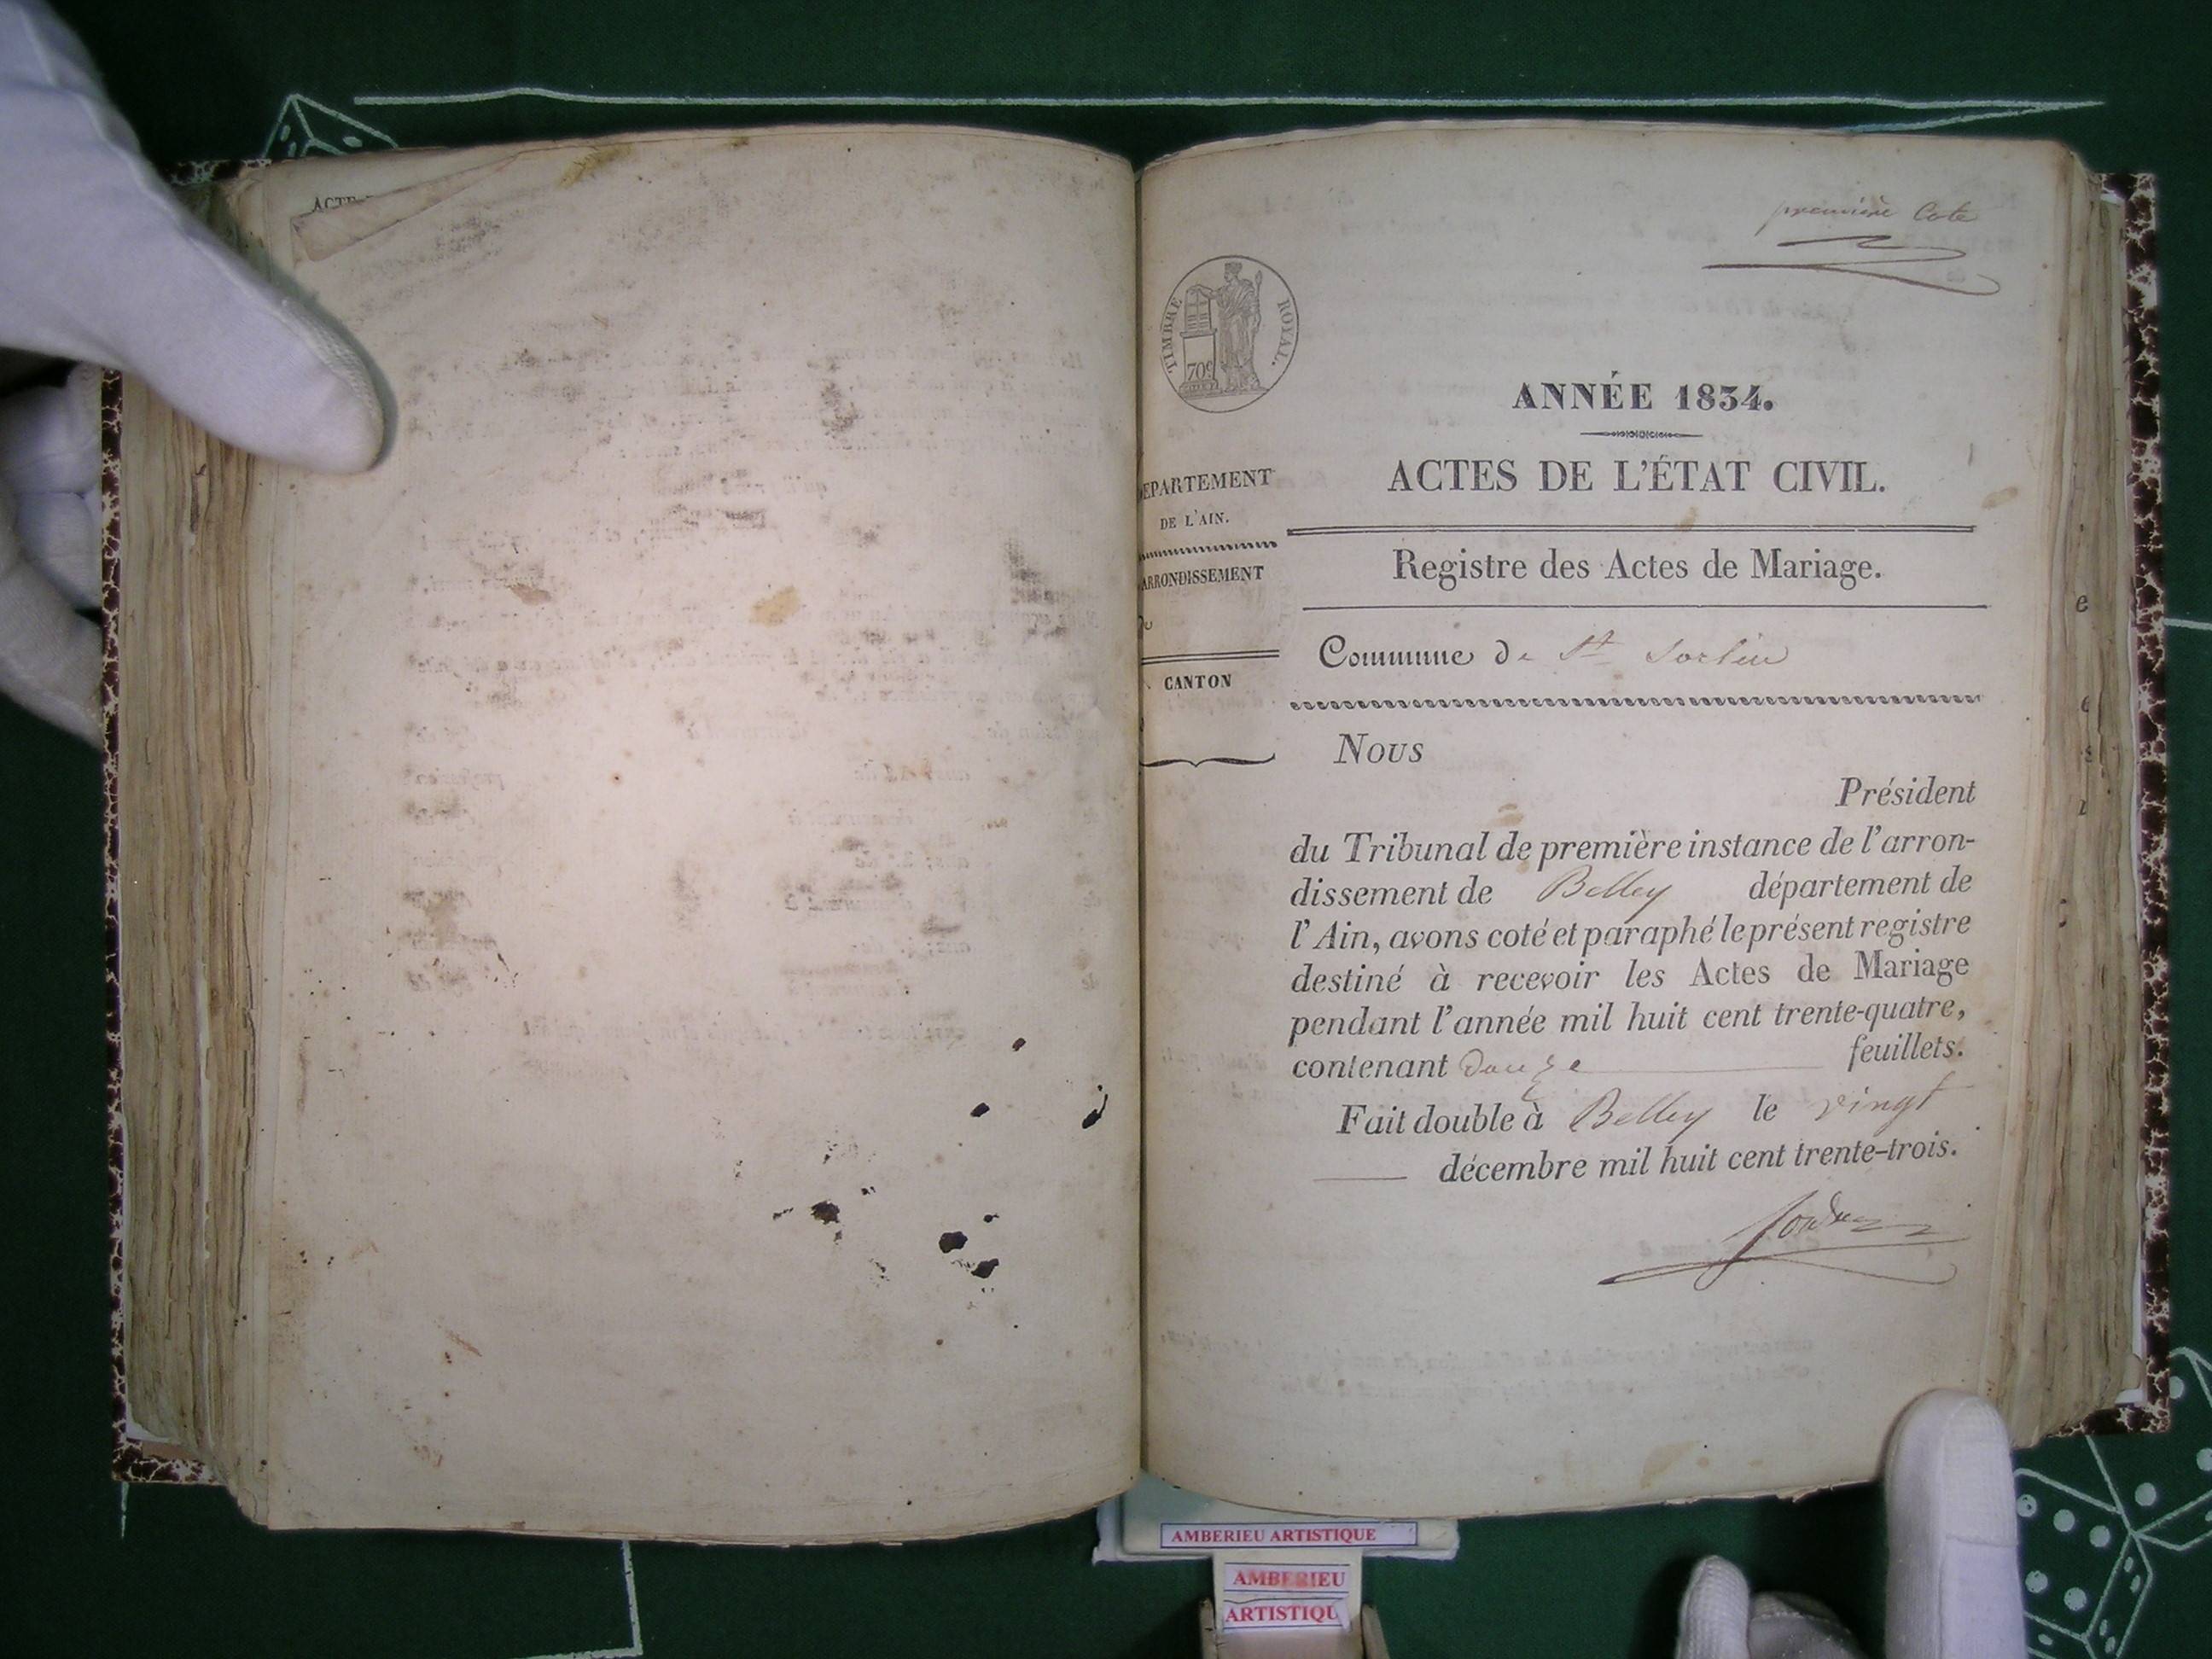 ACTE
première Cote
TIMBRE ROYAL.
70c
ANNÉE 1834.
ACTES DE L'ÉTAT CIVIL.
EPARTEMENT
DE L'AIN.
ARRONDISSEMENT
CANTON
Registre des Actes de Mariage.
Commune de St Sorlin
Nous
Président
du Tribunal de première instance de l'arron-
dissement de Belley département de
l'Ain, avons coté et paraphé le présent registre
destiné à recevoir les Actes de Mariage
pendant l'année mil huit cent trente-quatre,
contenant douze feuillets.
Fait double à Belley le vingt
décembre mil huit cent trente-trois.
AMBERIEU ARTISTIQUE
AMBERIEU
ARTISTIQU